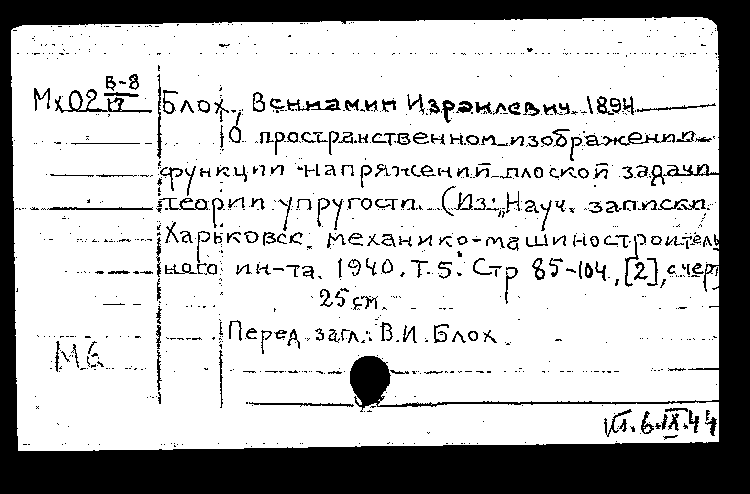 Мх02 В-8/17
Блох, Вениамин Израилевич 1894
О пространственном изображении
функции напряжений плоской задачи
теории упругости. (Из: „Науч. записки
Харьковск. механико-машиностроитель
ного ин-та. 1940. Т. 5. Стр 85-104, [2], с черт
25 см.
Перед загл.: В.И. Блох.
Мб
6.IX.44